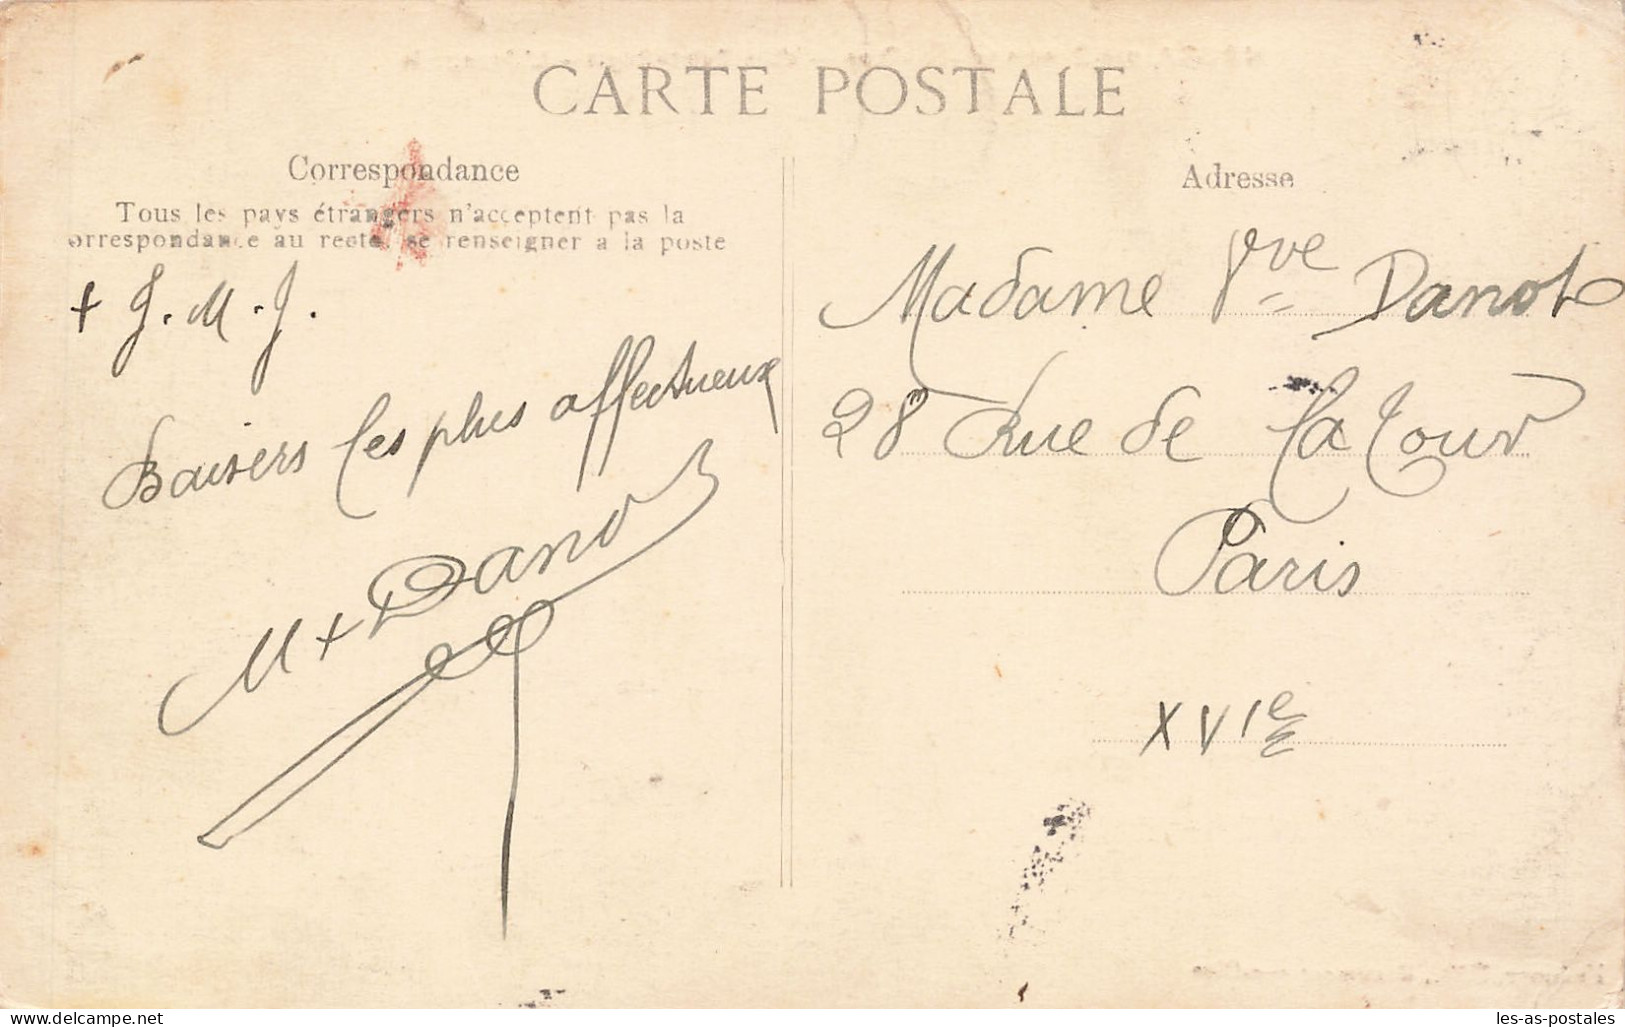 CARTE POSTALE
Correspondance
Tous les pays étrangers n'acceptent pas la
orrespondance au recto, se renseigner a la poste
+ J. M. J.
Baisers les plus affectueux
M + Danot
Adresse
Madame Vve Danot
28 Rue de La Tour
Paris
XVIe
www.delcampe.net
les-as-postales